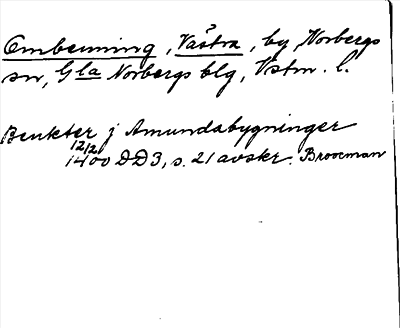 Ombenning, Västra, by, Norbergs
sn, Gla Norbergs blg, Vstm. l.
Benkter j Amundabygninger
12/2 1400 DD3, s. 21 avskr. Brooman